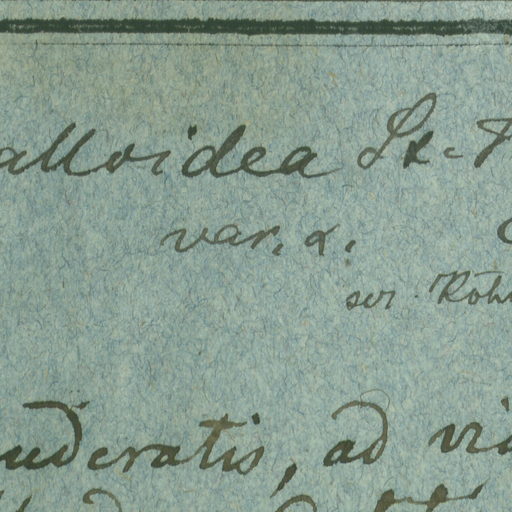 alloidea St-
var. α.
scr. Röh
uderatis, ad vi